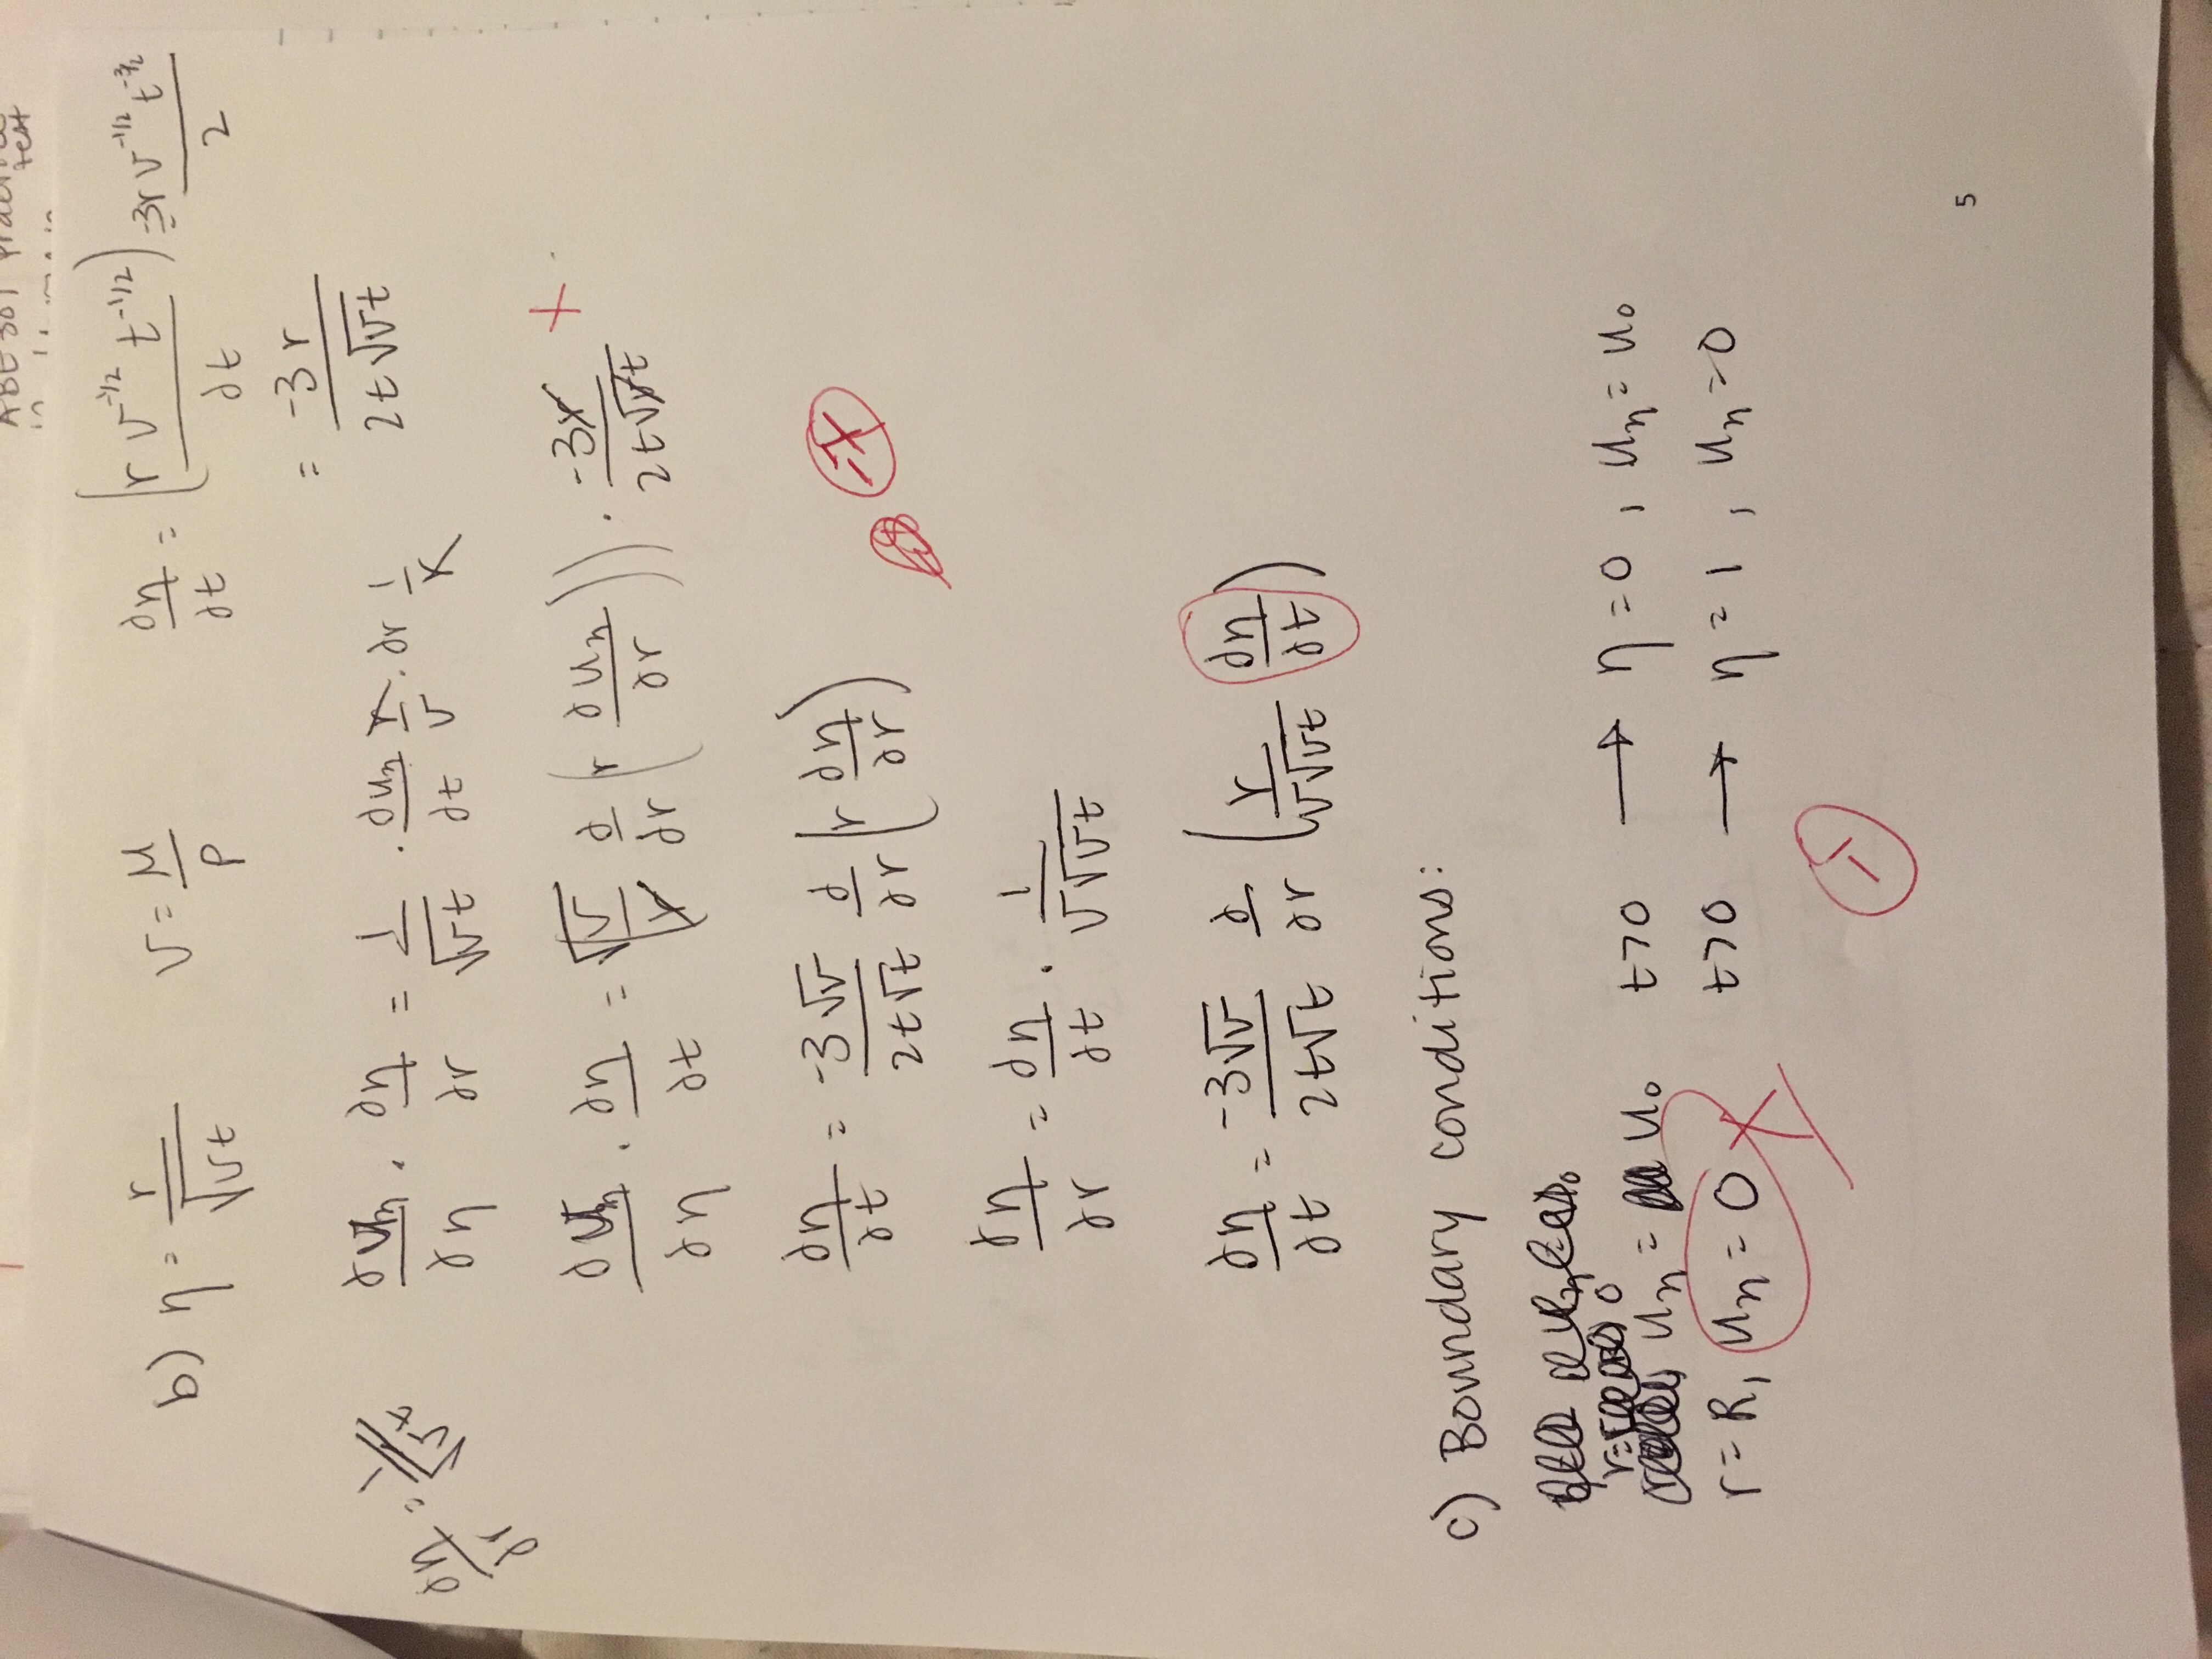 ABE 301 Practice
test
b) η = r/√(νt)    ν = μ/ρ    ∂η/∂t = (r ν^-1/2 t^-1/2)/∂t = -3r ν^-1/2 t^-3/2 / 2
= -3r / 2t√(νt)
∂η/∂r = 1/√(νt)    ∂uη/∂η · ∂η/∂r = 1/√(νt) · ∂uη/∂t r/ν · ∂r 1/r
∂uη/∂η · ∂η/∂t = √ν/r ∂/∂r (r ∂uη/∂r)) · -3r / 2t√(νt)
∂η/∂t = -3√ν / 2t√t ∂/∂r (r ∂η/∂r)    -7
∂η/∂r = ∂η/∂t · 1/ν√(νt)
∂η/∂t = -3√ν / 2t√t ∂/∂r (r/ν√(νt) ∂η/∂t)
c) Boundary conditions:
r= 0
uη = u₀    t>0 → η = 0 , uη = u₀
r = R, uη = 0    t>0 → η = 1 , uη = 0
-1
5